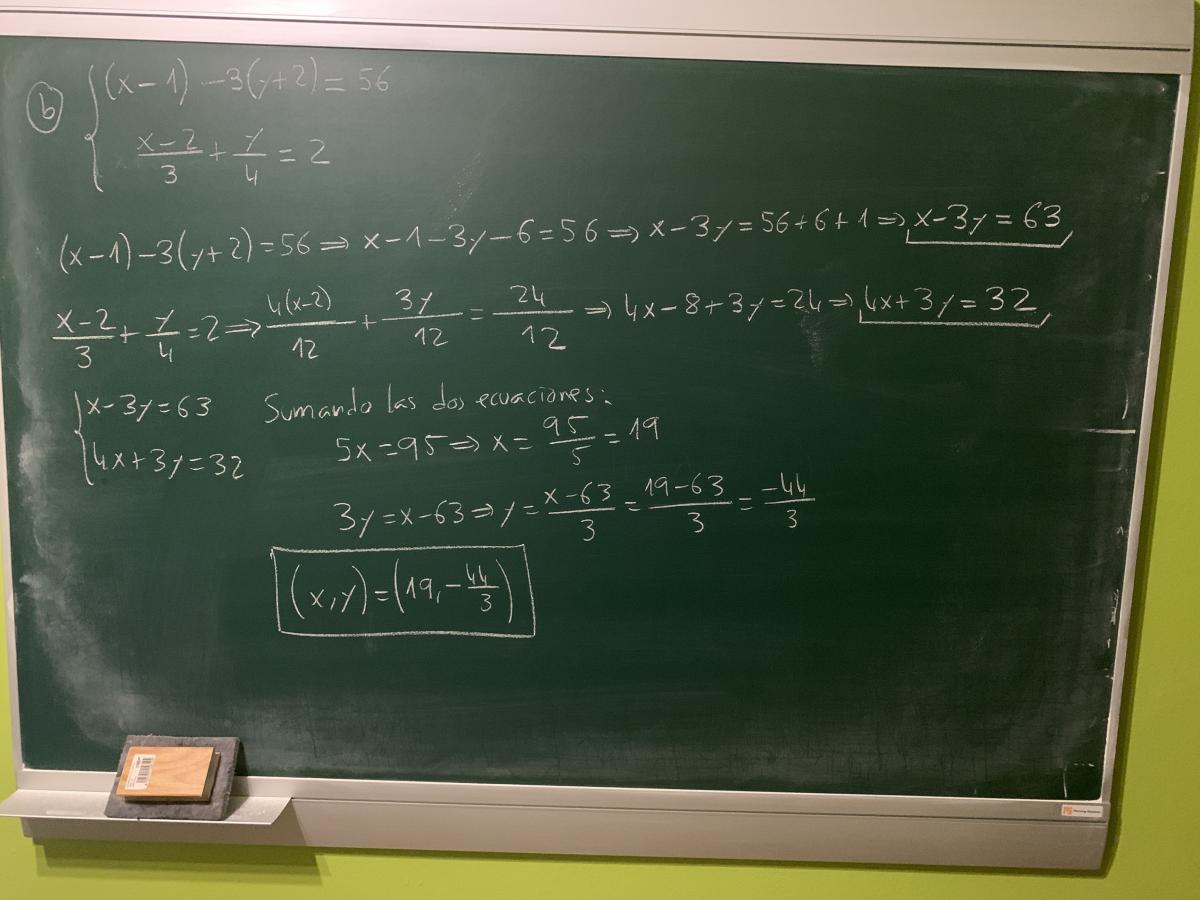 b { (x-1) -3(y+2) = 56
(x-2)/3 + y/4 = 2
(x-1)-3(y+2)=56 ⇒ x-1-3y-6=56 ⇒ x-3y=56+6+1 ⇒ x-3y=63
(x-2)/3 + y/4 = 2 ⇒ 4(x-2)/12 + 3y/12 = 24/12 ⇒ 4x-8+3y=24 ⇒ 4x+3y=32
{ x-3y=63 Sumando las dos ecuaciones:
4x+3y=32 5x=95 ⇒ x = 95/5 = 19
3y=x-63 ⇒ y = (x-63)/3 = (19-63)/3 = -44/3
(x,y)=(19,-44/3)